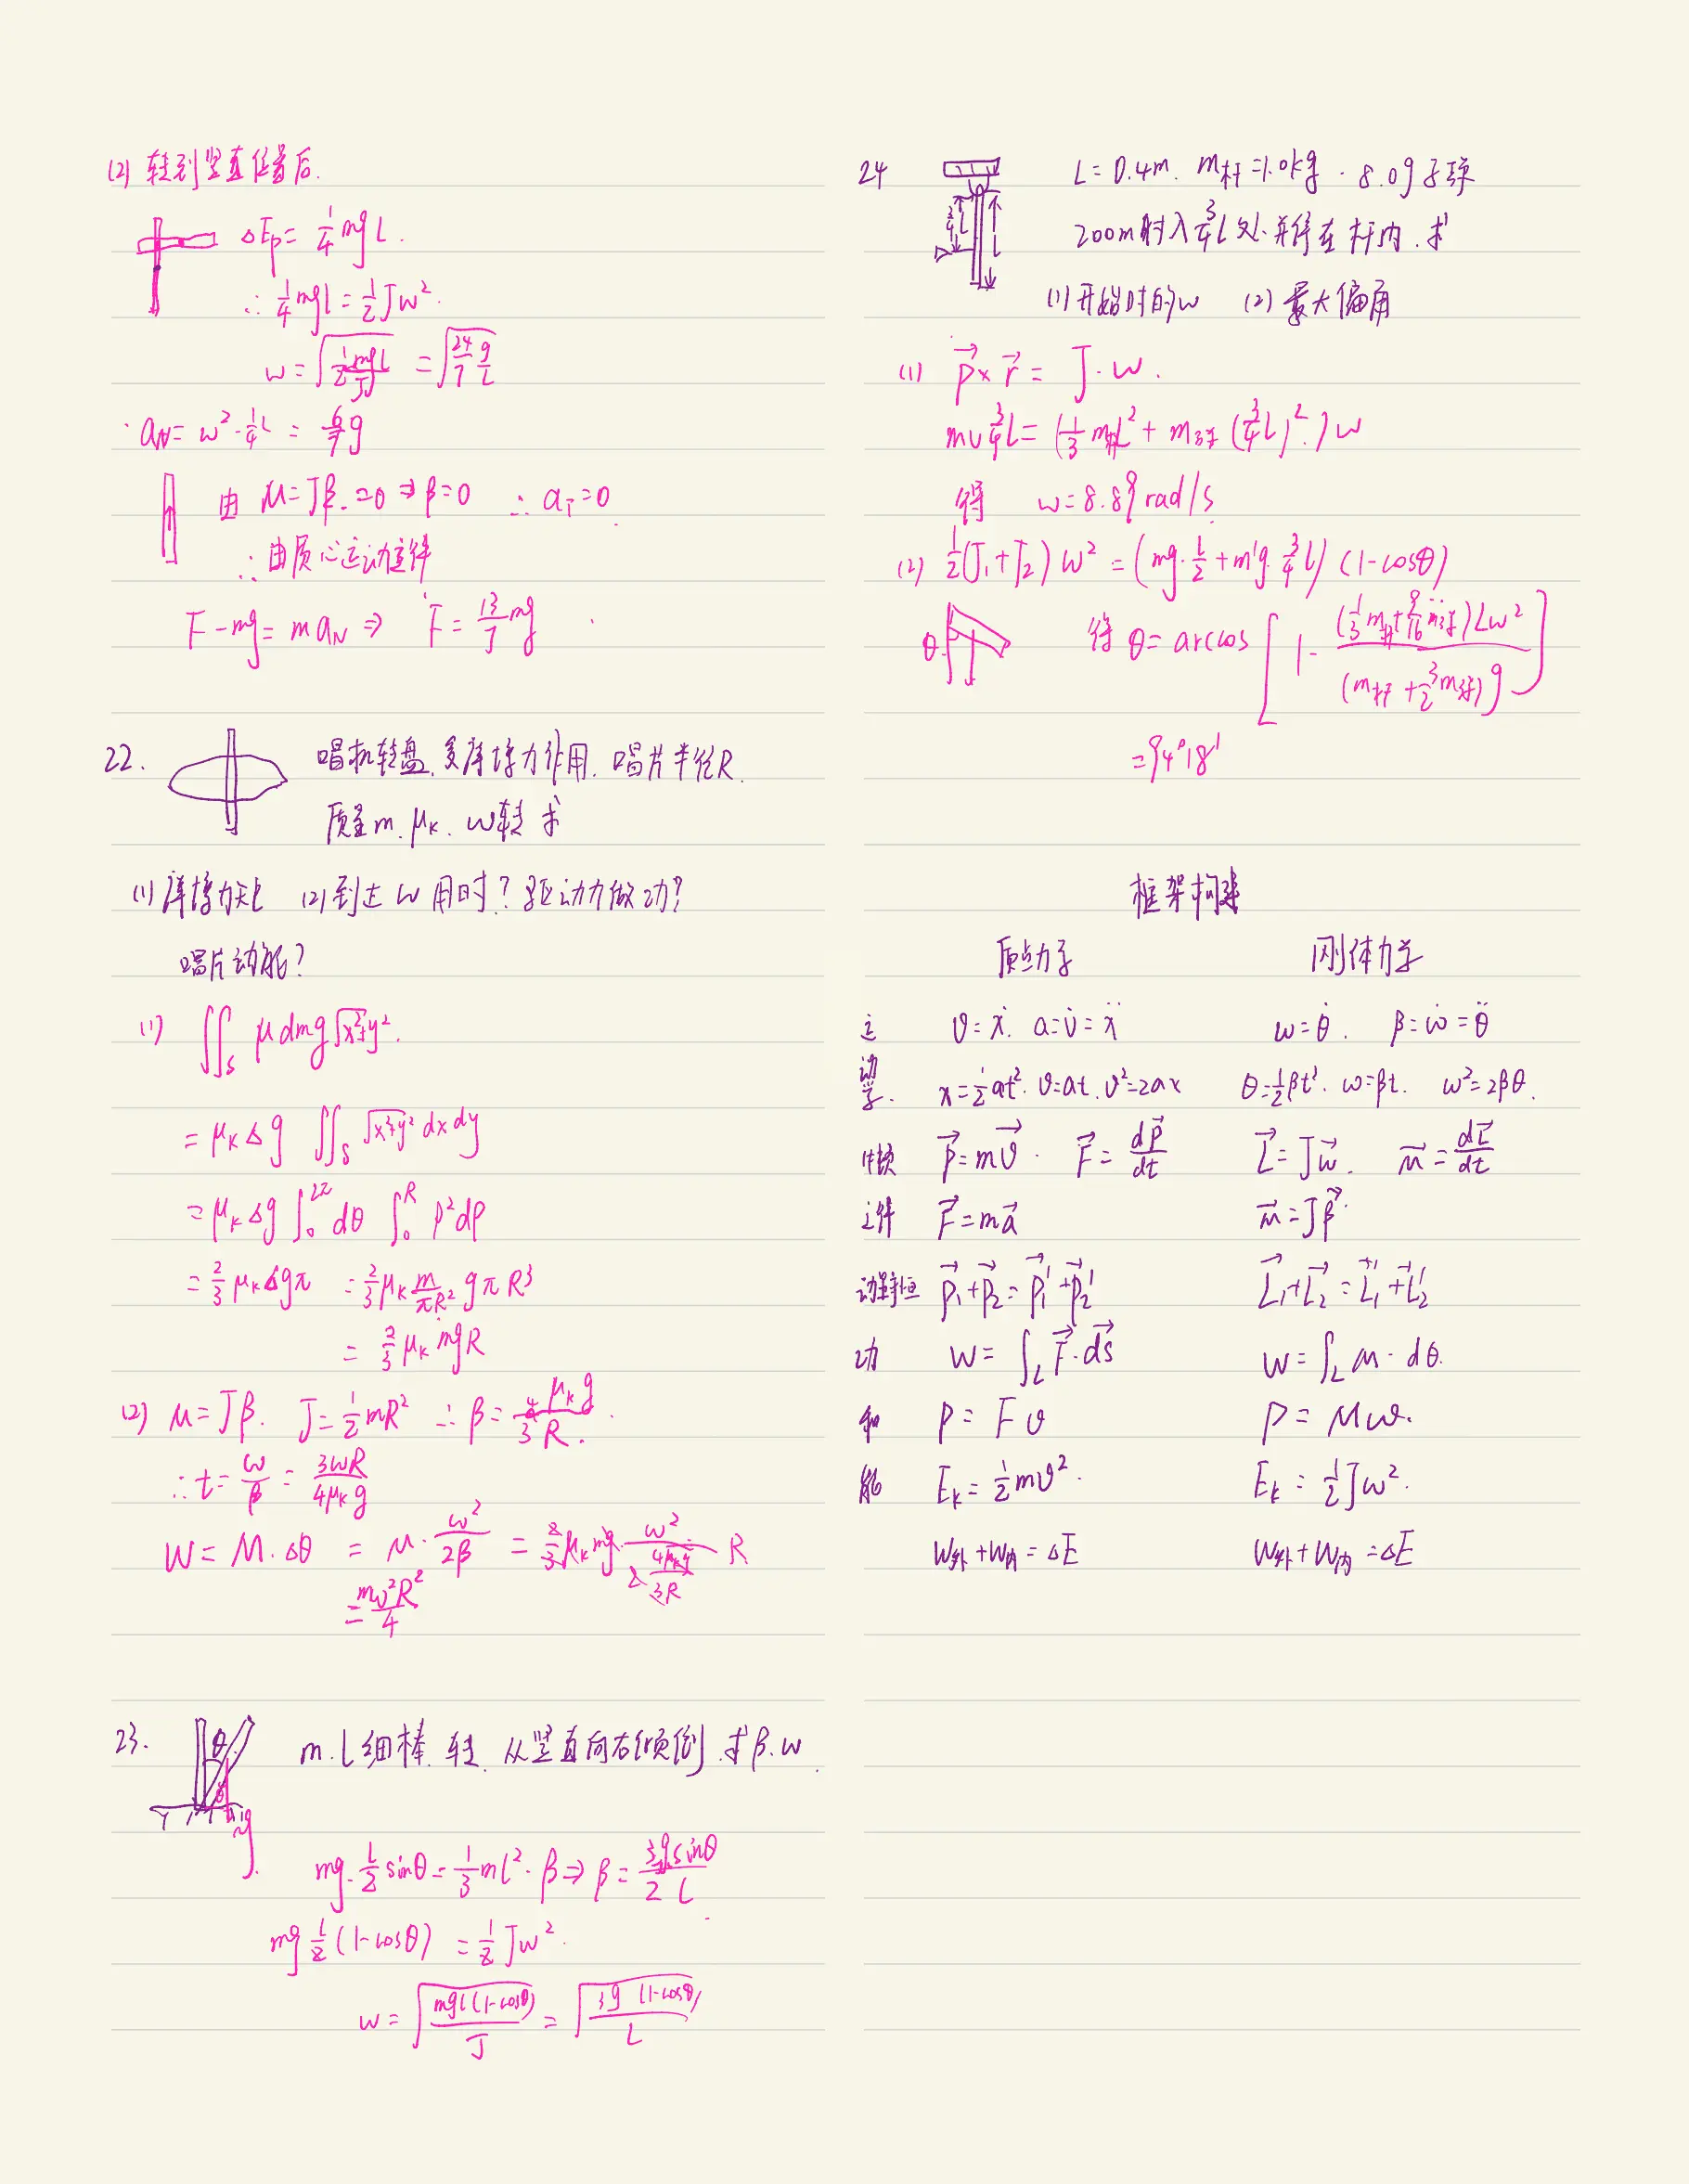 (2) 转到竖直位置后.
ΔEp = 1/4 mgL.
∴ 1/4 mgl = 1/2 Jω².
ω = √(1/2 mgL / J) = √(24/7 g/L)
aN = ω²·1/4 L = 6/7 g
由 M = Jβ = 0 ⇒ β = 0 ∴ aτ = 0
∴ 由质心运动定律
F - mg = m aN ⇒ F = 13/7 mg
22. 唱机转盘. 受摩擦力作用. 唱片半径R.
质量m. μk. ω转 求
(1) 摩擦力矩 (2) 到达 ω 用时? 驱动力做功?
唱片动能?
(1) ∬s μ dm g √(x²+y²).
= μk Δ g ∬s √(x²+y²) dx dy
= μk Δ g ∫₀^2π dθ ∫₀^R ρ² dρ
= 2/3 μk Δ g π = 2/3 μk m/(πR²) g π R³
= 2/3 μk mg R
(2) M = Jβ. J = 1/2 mR² ∴ β = 4/3 μk g / R.
∴ t = ω/β = 3ωR / 4μk g
W = M·Δθ = M· ω²/2β = 2/3 μk mg · ω² / (2 4μk g/3R) R
= mω²R²/4
23. m. l 细棒. 转. 从竖直向右倾倒. 求 β. ω.
mg·L/2 sinθ = 1/3 ml²·β ⇒ β = 3g sinθ / 2L
mg L/2 (1-cosθ) = 1/2 Jω².
ω = √(mgl(1-cosθ) / J) = √(3g (1-cosθ) / L)
24 L = 0.4m. m杆 = 1.0kg. 8.0g 子弹
200m 射入 3/4 L 处. 并停在杆内. 求
(1) 开始时的ω (2) 最大偏角
(1) p⃗ × r⃗ = J·ω.
mv 3/4 L = (1/3 m杆L² + m子 (3/4 L)².) ω
得 ω = 8.89 rad/s
(2) 1/2 (J₁+J₂) ω² = (mg·L/2 + m'g·3/4 L) (1-cosθ)
得 θ = arccos [1 - (1/3 m杆 + 9/16 m子) Lω² / (m杆 + 3/2 m子) g]
= 94°18'
框架构建
质点力学 刚体力学
运动学. v = ẋ. a = v̇ = ẍ ω = θ̇. β = ω̇ = θ̈
x = 1/2 at². v = at. v² = 2ax θ = 1/2 βt². ω = βt. ω² = 2βθ.
p⃗ = mv⃗. F⃗ = dp⃗/dt L⃗ = Jω⃗. M⃗ = dL⃗/dt
F⃗ = ma⃗ M⃗ = Jβ⃗
动量守恒 p⃗₁+p⃗₂ = p⃗₁'+p⃗₂' L⃗₁+L⃗₂ = L⃗₁'+L⃗₂'
功 W = ∫L F⃗·ds⃗ W = ∫L M·dθ.
和 P = Fv P = Mω.
能 Ek = 1/2 mv². Ek = 1/2 Jω².
W外+W内 = ΔE W外+W内 = ΔE